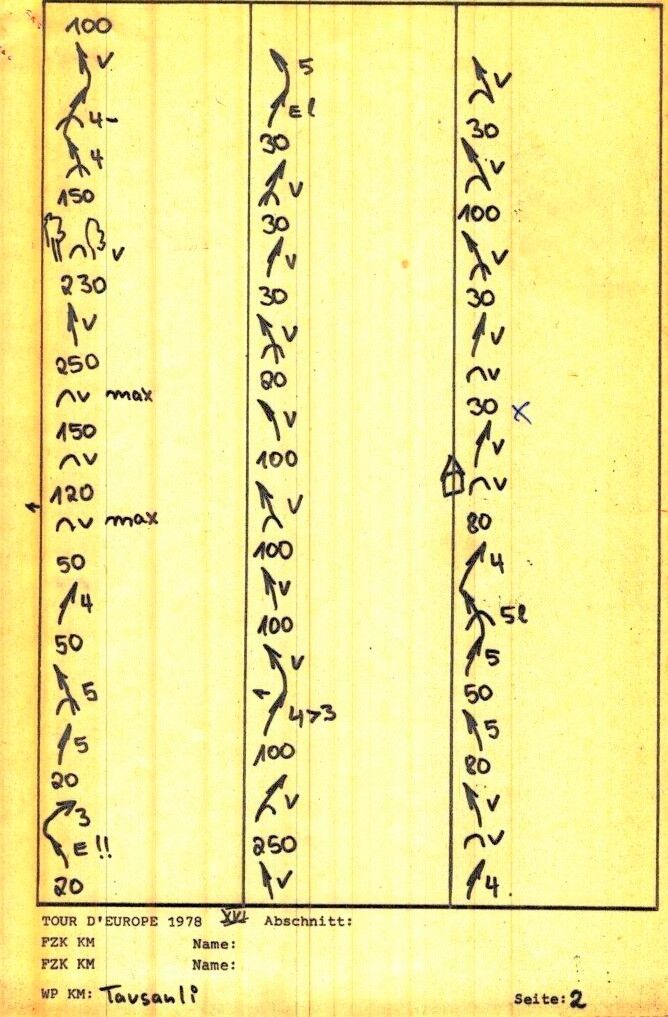 100
V
4-
4
150
V
230
V
250
V max
150
V
120
V max
50
4
50
5
5
20
3
E!!
20
5
El
30
V
30
V
30
V
80
V
100
V
100
V
100
V
4>3
100
V
250
V
V
30
V
100
V
30
V
V
30 X
V
V
80
4
5l
5
50
5
80
V
V
4
TOUR D'EUROPE 1978 XVI Abschnitt:
FZK KM Name:
FZK KM Name:
WP KM: Tavsanli Seite: 2